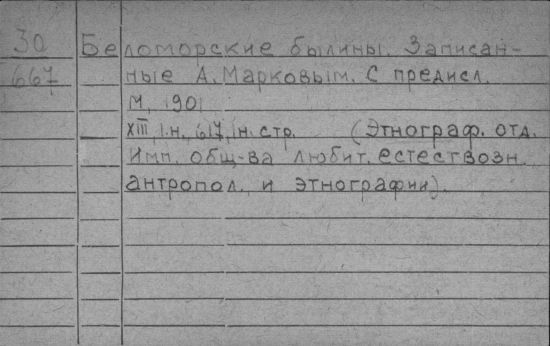 30 Беломорские былины. Записан-
667 ные А. Марковым. С предисл.
М, 1901
XIII, 1.н., 617, 1н. стр. (Этнограф. отд.
Имп. общ-ва любит. естествозн.
антропол. и этнографии).